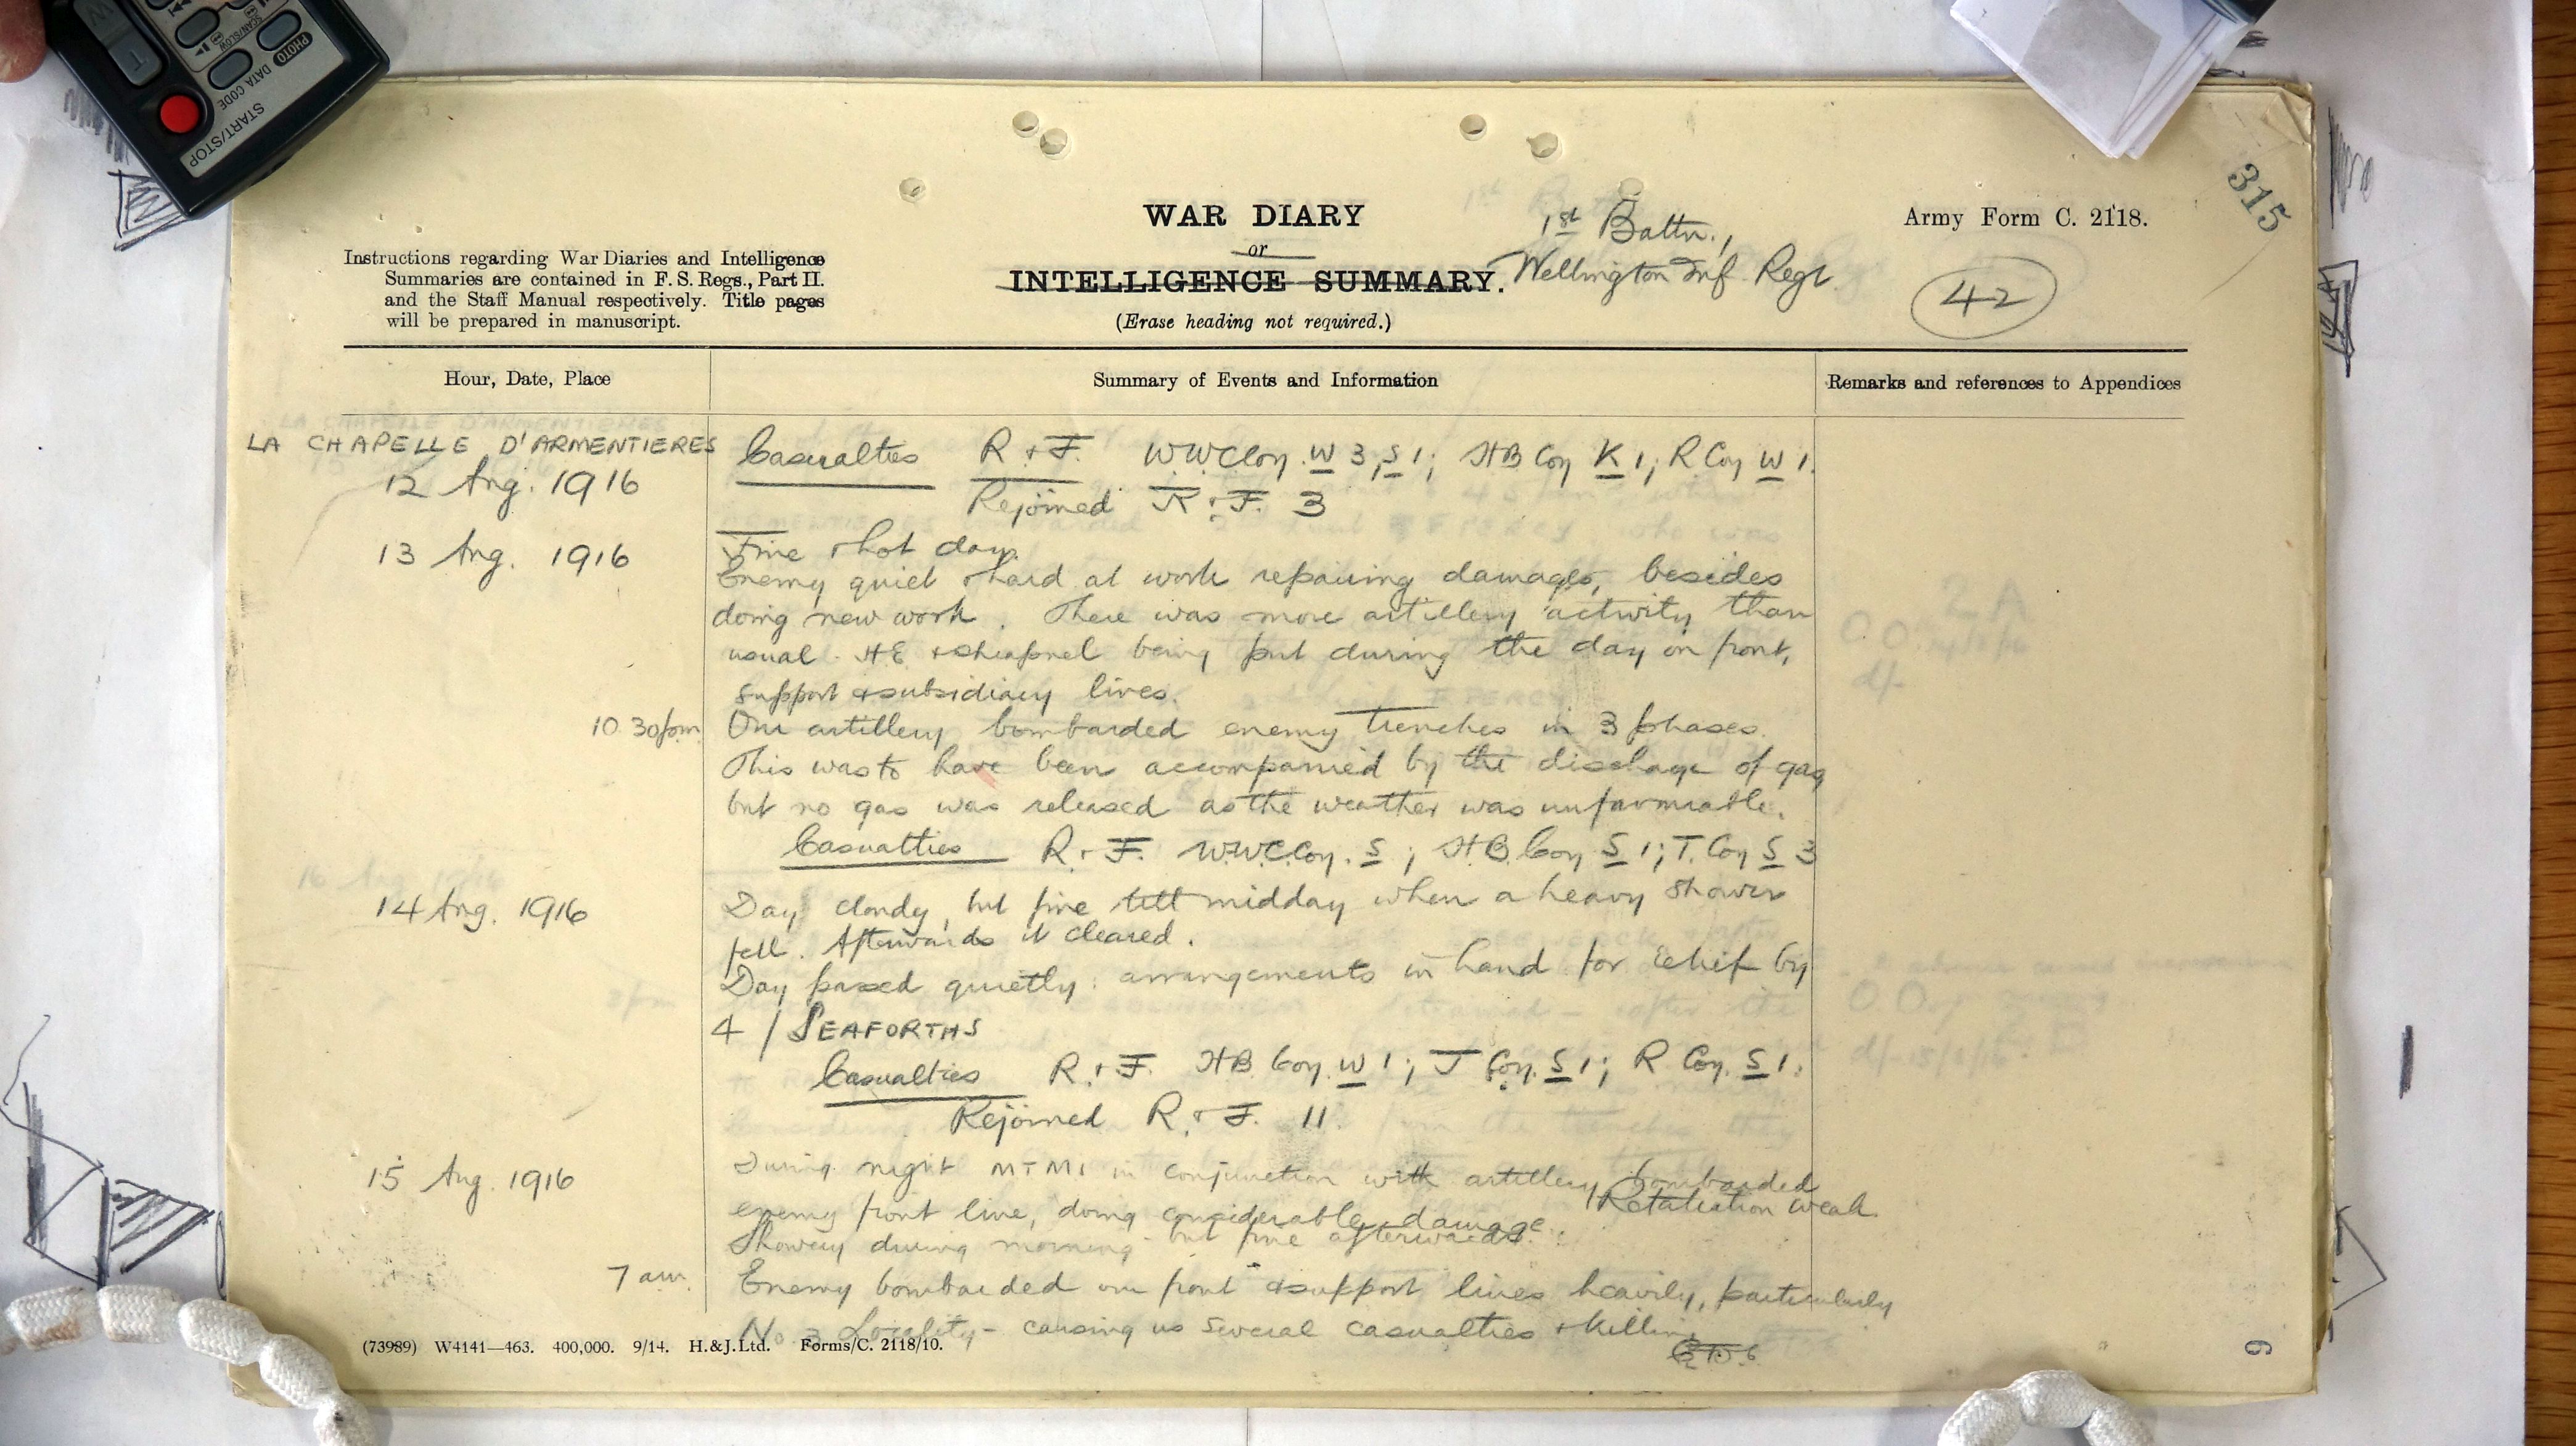 PHOTO
SCAN/SLOW
DATA CODE
START/STOP
T
W
315
WAR DIARY
or
INTELLIGENCE SUMMARY.
(Erase heading not required.)
1st Battn.,
Wellington Inf Regt
Army Form C. 2118.
42
Instructions regarding War Diaries and Intelligence
Summaries are contained in F. S. Regs., Part II.
and the Staff Manual respectively. Title pages
will be prepared in manuscript.
Hour, Date, Place
Summary of Events and Information
Remarks and references to Appendices
LA CHAPELLE D'ARMENTIERES
12 Aug. 1916
Casualties R. + F. W.W.C Coy. W 3, S 1; H B Coy K 1; R Coy W 1.
Rejoined R + F. 3
13 Aug. 1916
Fine & hot day.
Enemy quiet & hard at work repairing damages, besides
doing new work. There was more artillery activity than
usual - HE & sheapnel being put during the day on front,
support & subsidiary lines.
10 30pm
Our artillery bombarded enemy trenches in 3 phases.
This was to have been accompanied by the dischage of gas
but no gas was released as the weather was unfavourable.
Casualties R. + F. W.W.C. Coy. S ; H.B. Coy S 1; T. Coy S 3
14 Aug. 1916
Day cloudy, but fine till midday when a heavy shower
fell. Afterwards it cleared.
Day passed quietly: arrangements in hand for relief by
4 / SEAFORTHS
Casualties R. + F. HB Coy. W 1; T Coy. S 1; R Coy. S 1.
Rejoined R. + F. 11.
15 Aug. 1916
During night MTMs in conjunction with artillery bombarded
enemy front line, doing considerable damage. Retaliation weak.
Showery during morning - but fine afterwards.
7 am.
Enemy bombarded our front & support lines heavily, particularly
No 3 Locality - causing us several casualties & killing
(73989) W4141—463. 400,000. 9/14. H.&J.Ltd. Forms/C. 2118/10.
9